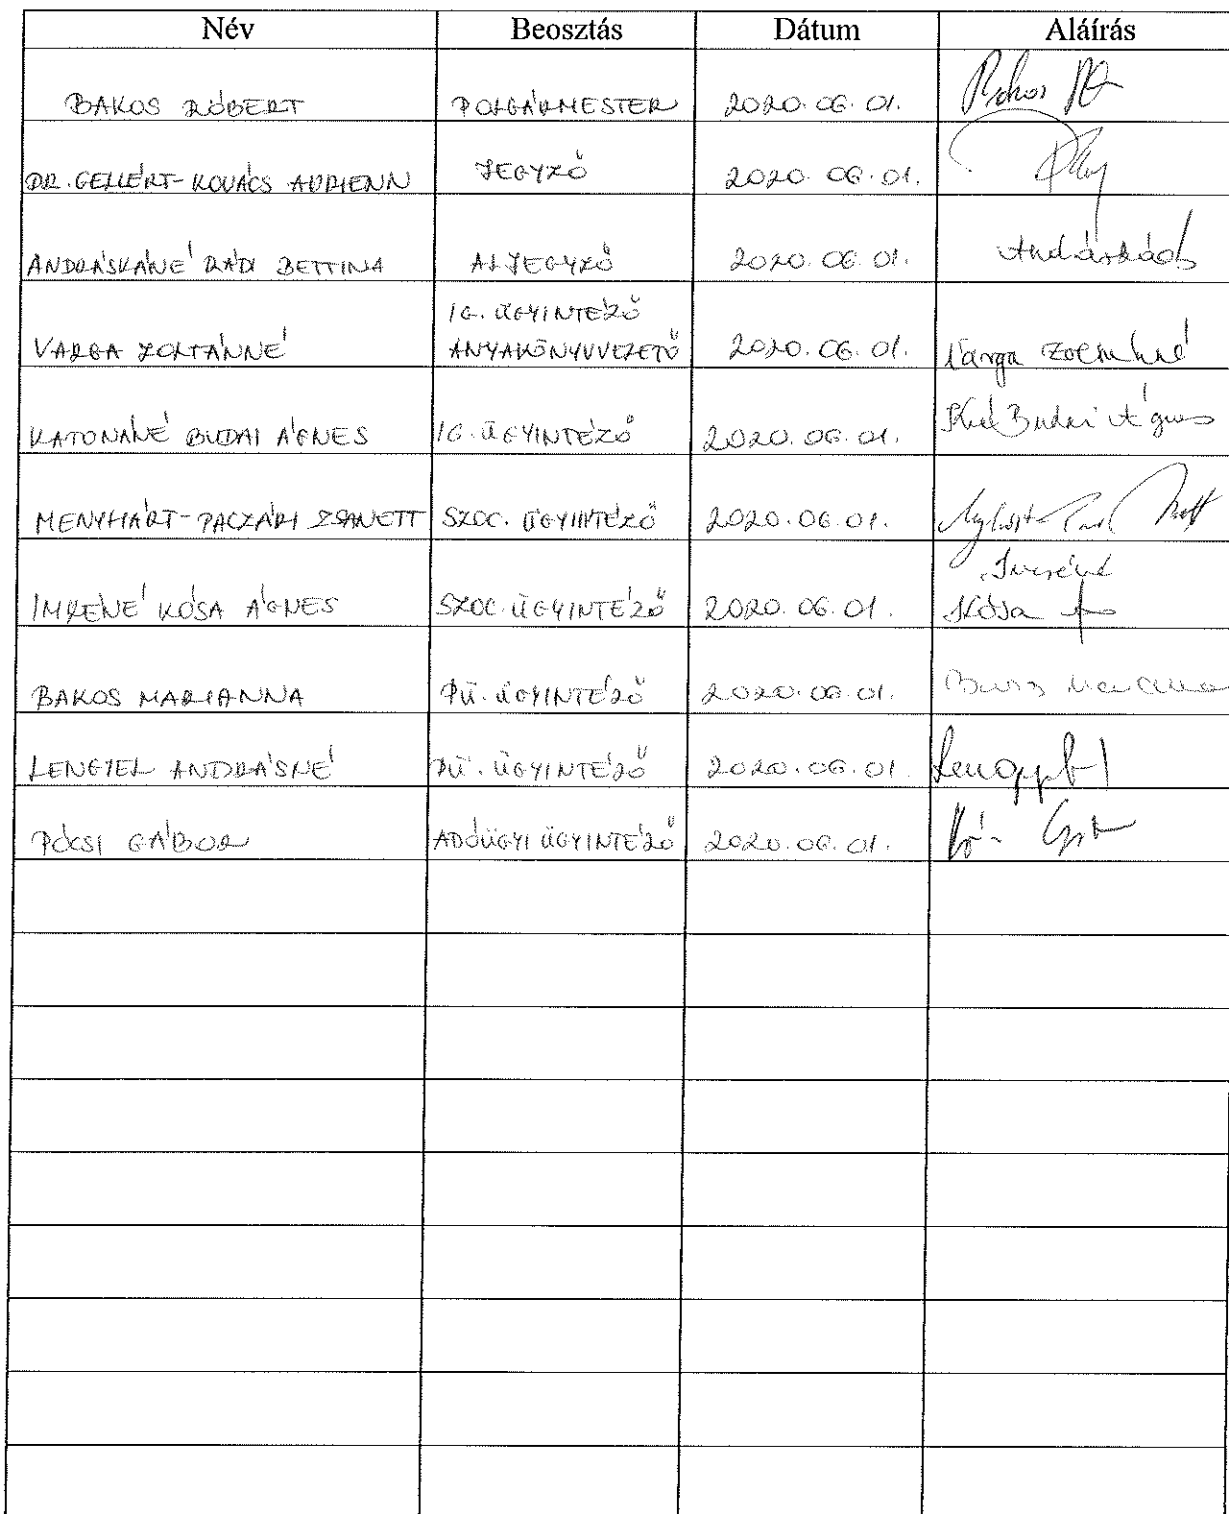 Név Beosztás Dátum Aláírás
BAKOS RÓBERT POLGÁRMESTER 2020.06.01.
DR. GELLÉRT-KOVÁCS ADRIENN JEGYZŐ 2020.06.01.
ANDRÁSKÁNÉ RÁDI BETTINA ALJEGYZŐ 2020.06.01.
IG. ÜGYINTÉZŐ
VARGA ZOLTÁNNÉ ANYAKÖNYVVEZETŐ 2020.06.01. Varga Zoltánné
KATONÁNÉ BUDAI ÁGNES IG. ÜGYINTÉZŐ 2020.06.01. Budai Ágnes
MENYHÁRT-PACZÁRI ZSANETT SZOC. ÜGYINTÉZŐ 2020.06.01.
Imréné
IMRÉNÉ KÓSA ÁGNES SZOC. ÜGYINTÉZŐ 2020.06.01. Kósa
BAKOS MARIANNA PÜ. ÜGYINTÉZŐ 2020.06.01.
LENGYEL ANDRÁSNÉ PÜ. ÜGYINTÉZŐ 2020.06.01.
PÓCSI GÁBOR ADÓÜGYI ÜGYINTÉZŐ 2020.06.01.